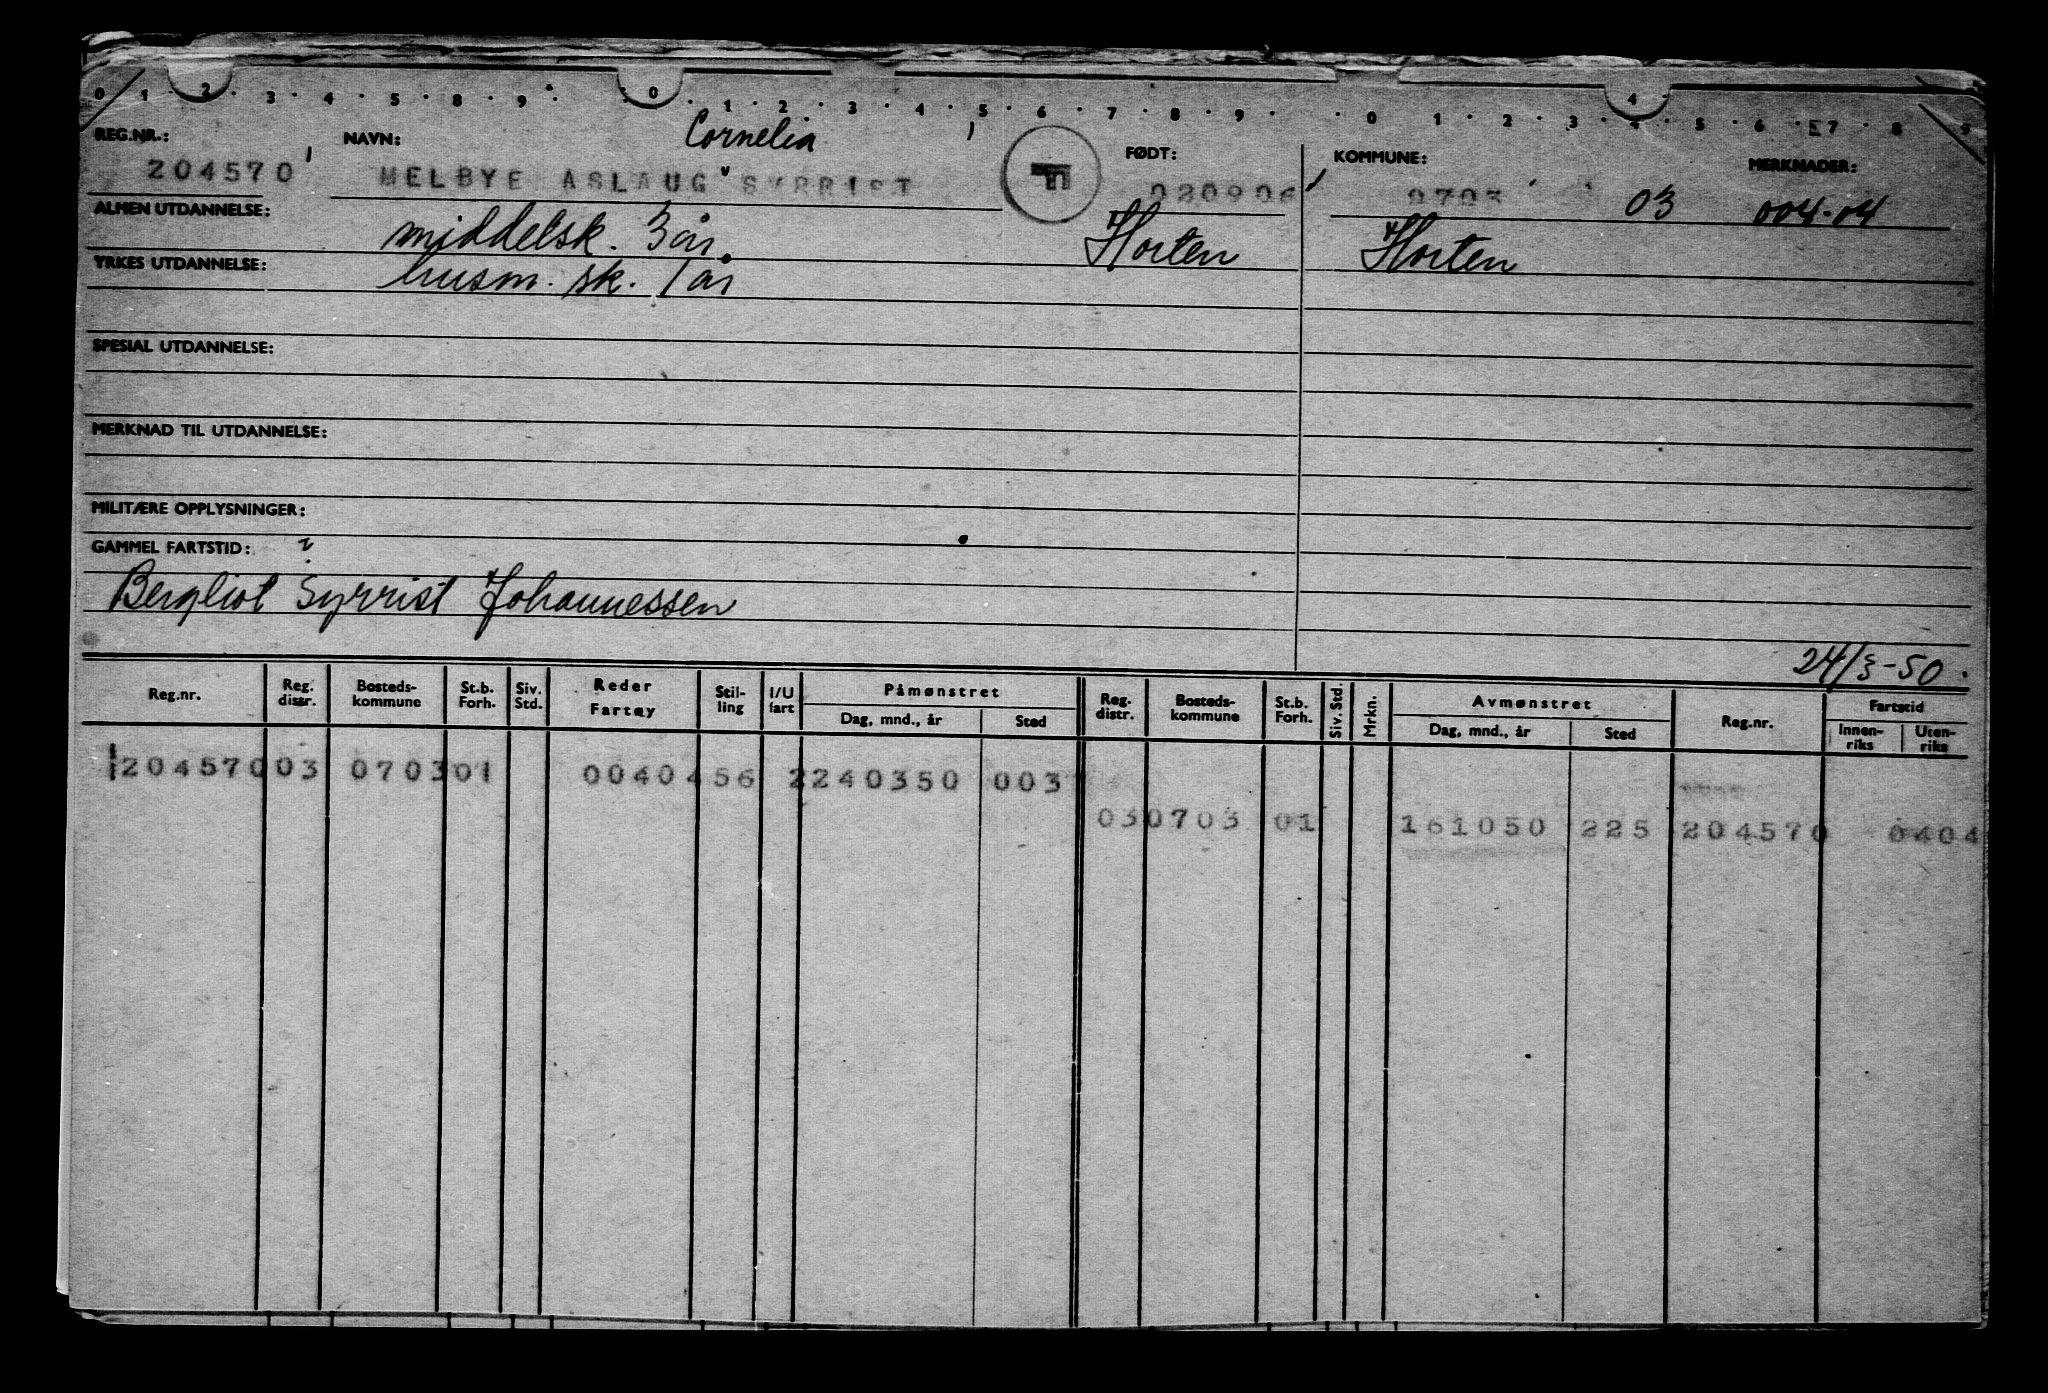 0 1 2 3 4 5 8 9 0 1 2 3 4 5 6 7 8 9 0 1 2 3 4 5 6 7 8 9
REG.NR.: NAVN: Cornelia FØDT: KOMMUNE: MERKNADER:
204570 MELBYE ASLAUG SYRRIST 020906 0703 03 004-04
ALMEN UTDANNELSE: middelsk. 3 år. Horten Horten
YRKES UTDANNELSE: husm. sk. 1 år
SPESIAL UTDANNELSE:
MERKNAD TIL UTDANNELSE:
MILITÆRE OPPLYSNINGER:
GAMMEL FARTSTID:
Bergliot Syrrist Johannessen
24/3-50.
Reg.nr. Reg. distr. Bosteds-kommune St.b. Forh. Siv. Std. Reder Fartøy Stil-ling I/U fart Påmønstret Dag, mnd., år Sted Reg. distr. Bosteds-kommune St.b. Forh. Siv. Std. Mrkn. Avmønstret Dag, mnd., år Sted Reg.nr. Fartstid Innen-riks Uten-riks
204570 03 0703 01 0040456 2240350 003
03 0703 01 161050 225 204570 0404